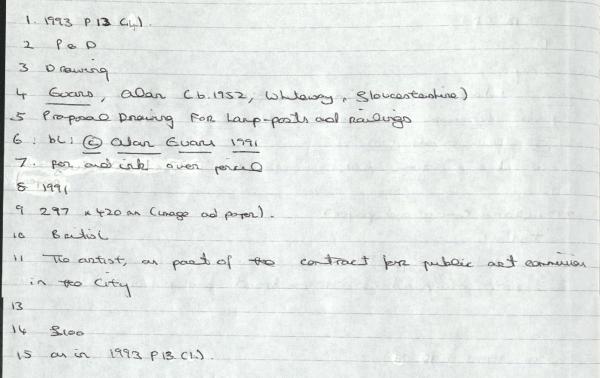 1. 1993 P 13 (4).
2 P & D
3 Drawing
4 Evans, Alan (b. 1952, Whiteway, Gloucestershire)
5 Proposal Drawing For Lamp-posts and railings
6. bL: © Alan Evans 1991
7. pen and ink over pencil
8 1991
9 297 x 420 mm (image and paper).
10 British
11 The artist, as part of the contract for public art commission
in the City
13
14 £100
15 as in 1993 P 13 (1).